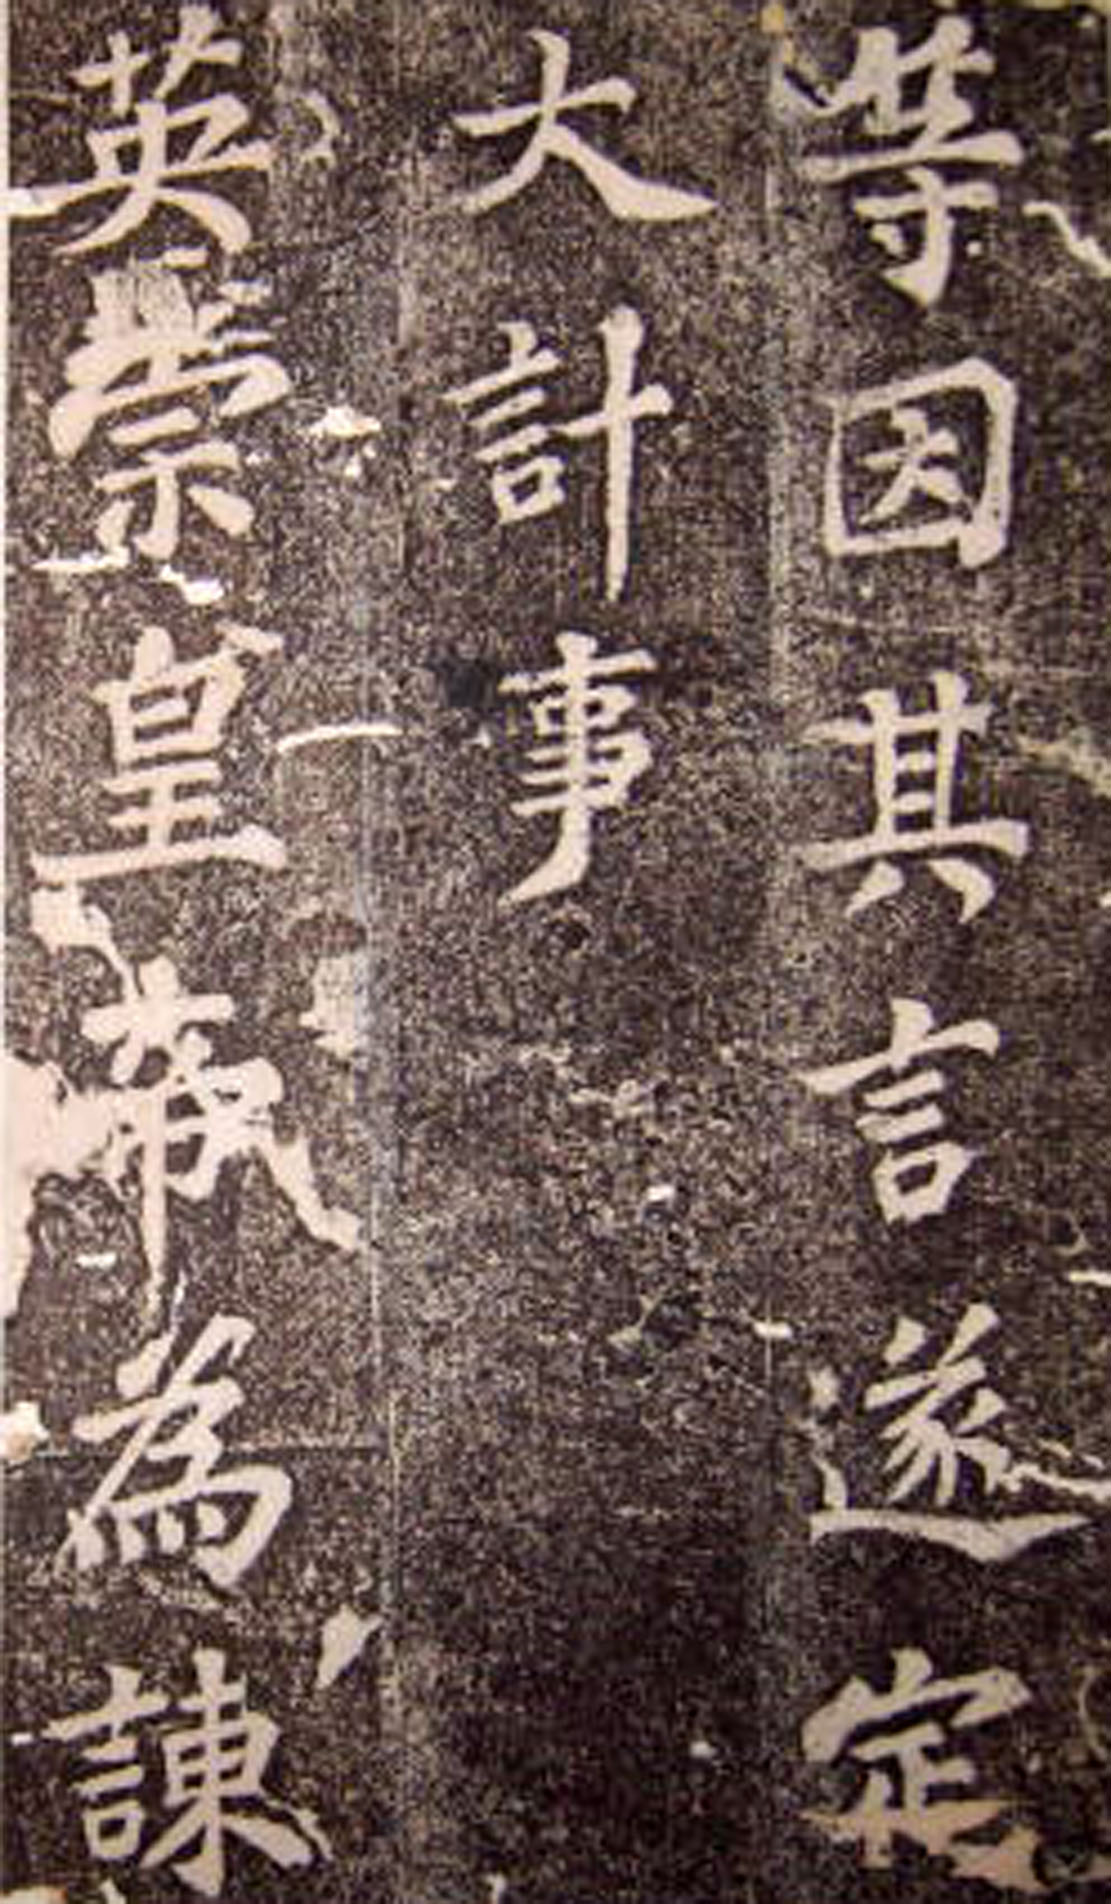 等因其言遂定
大計事
英宗皇帝為諫